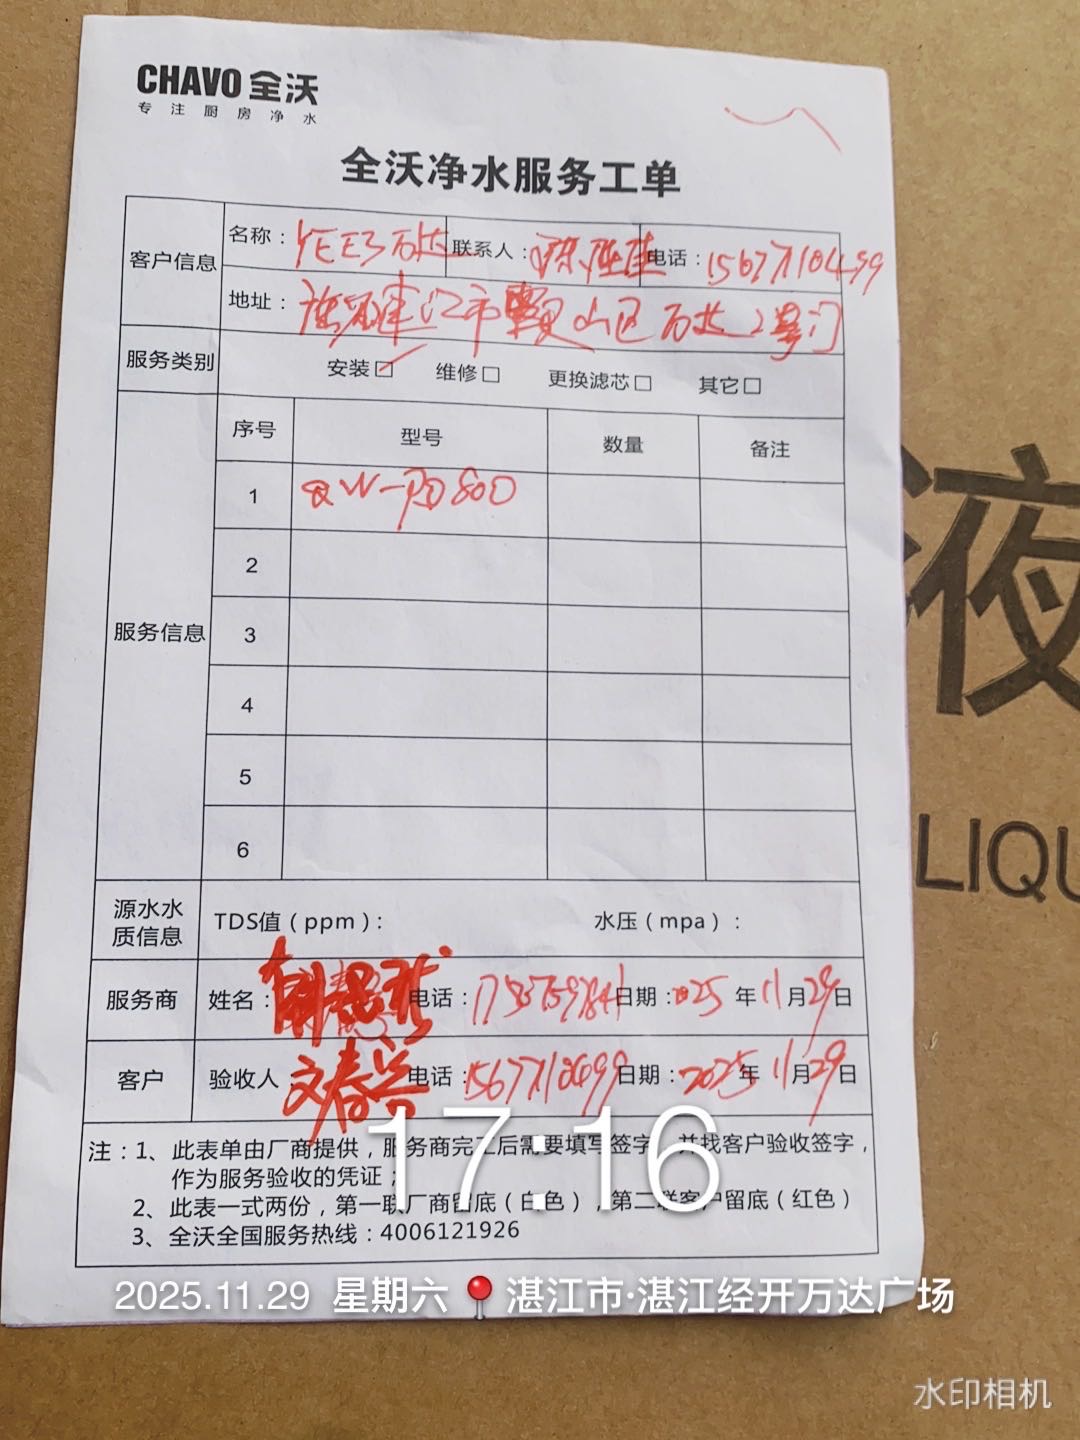 CHAVO 全沃
专注厨房净水
全沃净水服务工单
客户信息
名称：YEE3万达 联系人： 电话：15677110499
地址：江市霞山区万达2号门
服务类别
安装 维修 更换滤芯 其它
服务信息
序号 型号 数量 备注
1 QW-RO800
2
3
4
5
6
源水水质信息
TDS值（ppm）： 水压（mpa）：
服务商 姓名： 电话： 日期：2025年11月29日
客户 验收人：文春兰 电话：15677110499 日期：2025年11月29日
注：1、此表单由厂商提供，服务商完工后需要填写签字，并找客户验收签字，
作为服务验收的凭证；
2、此表一式两份，第一联厂商留底（白色），第二联客户留底（红色）
3、全沃全国服务热线：4006121926
17:16
2025.11.29 星期六 湛江市·湛江经开万达广场
水印相机
液
LIQU